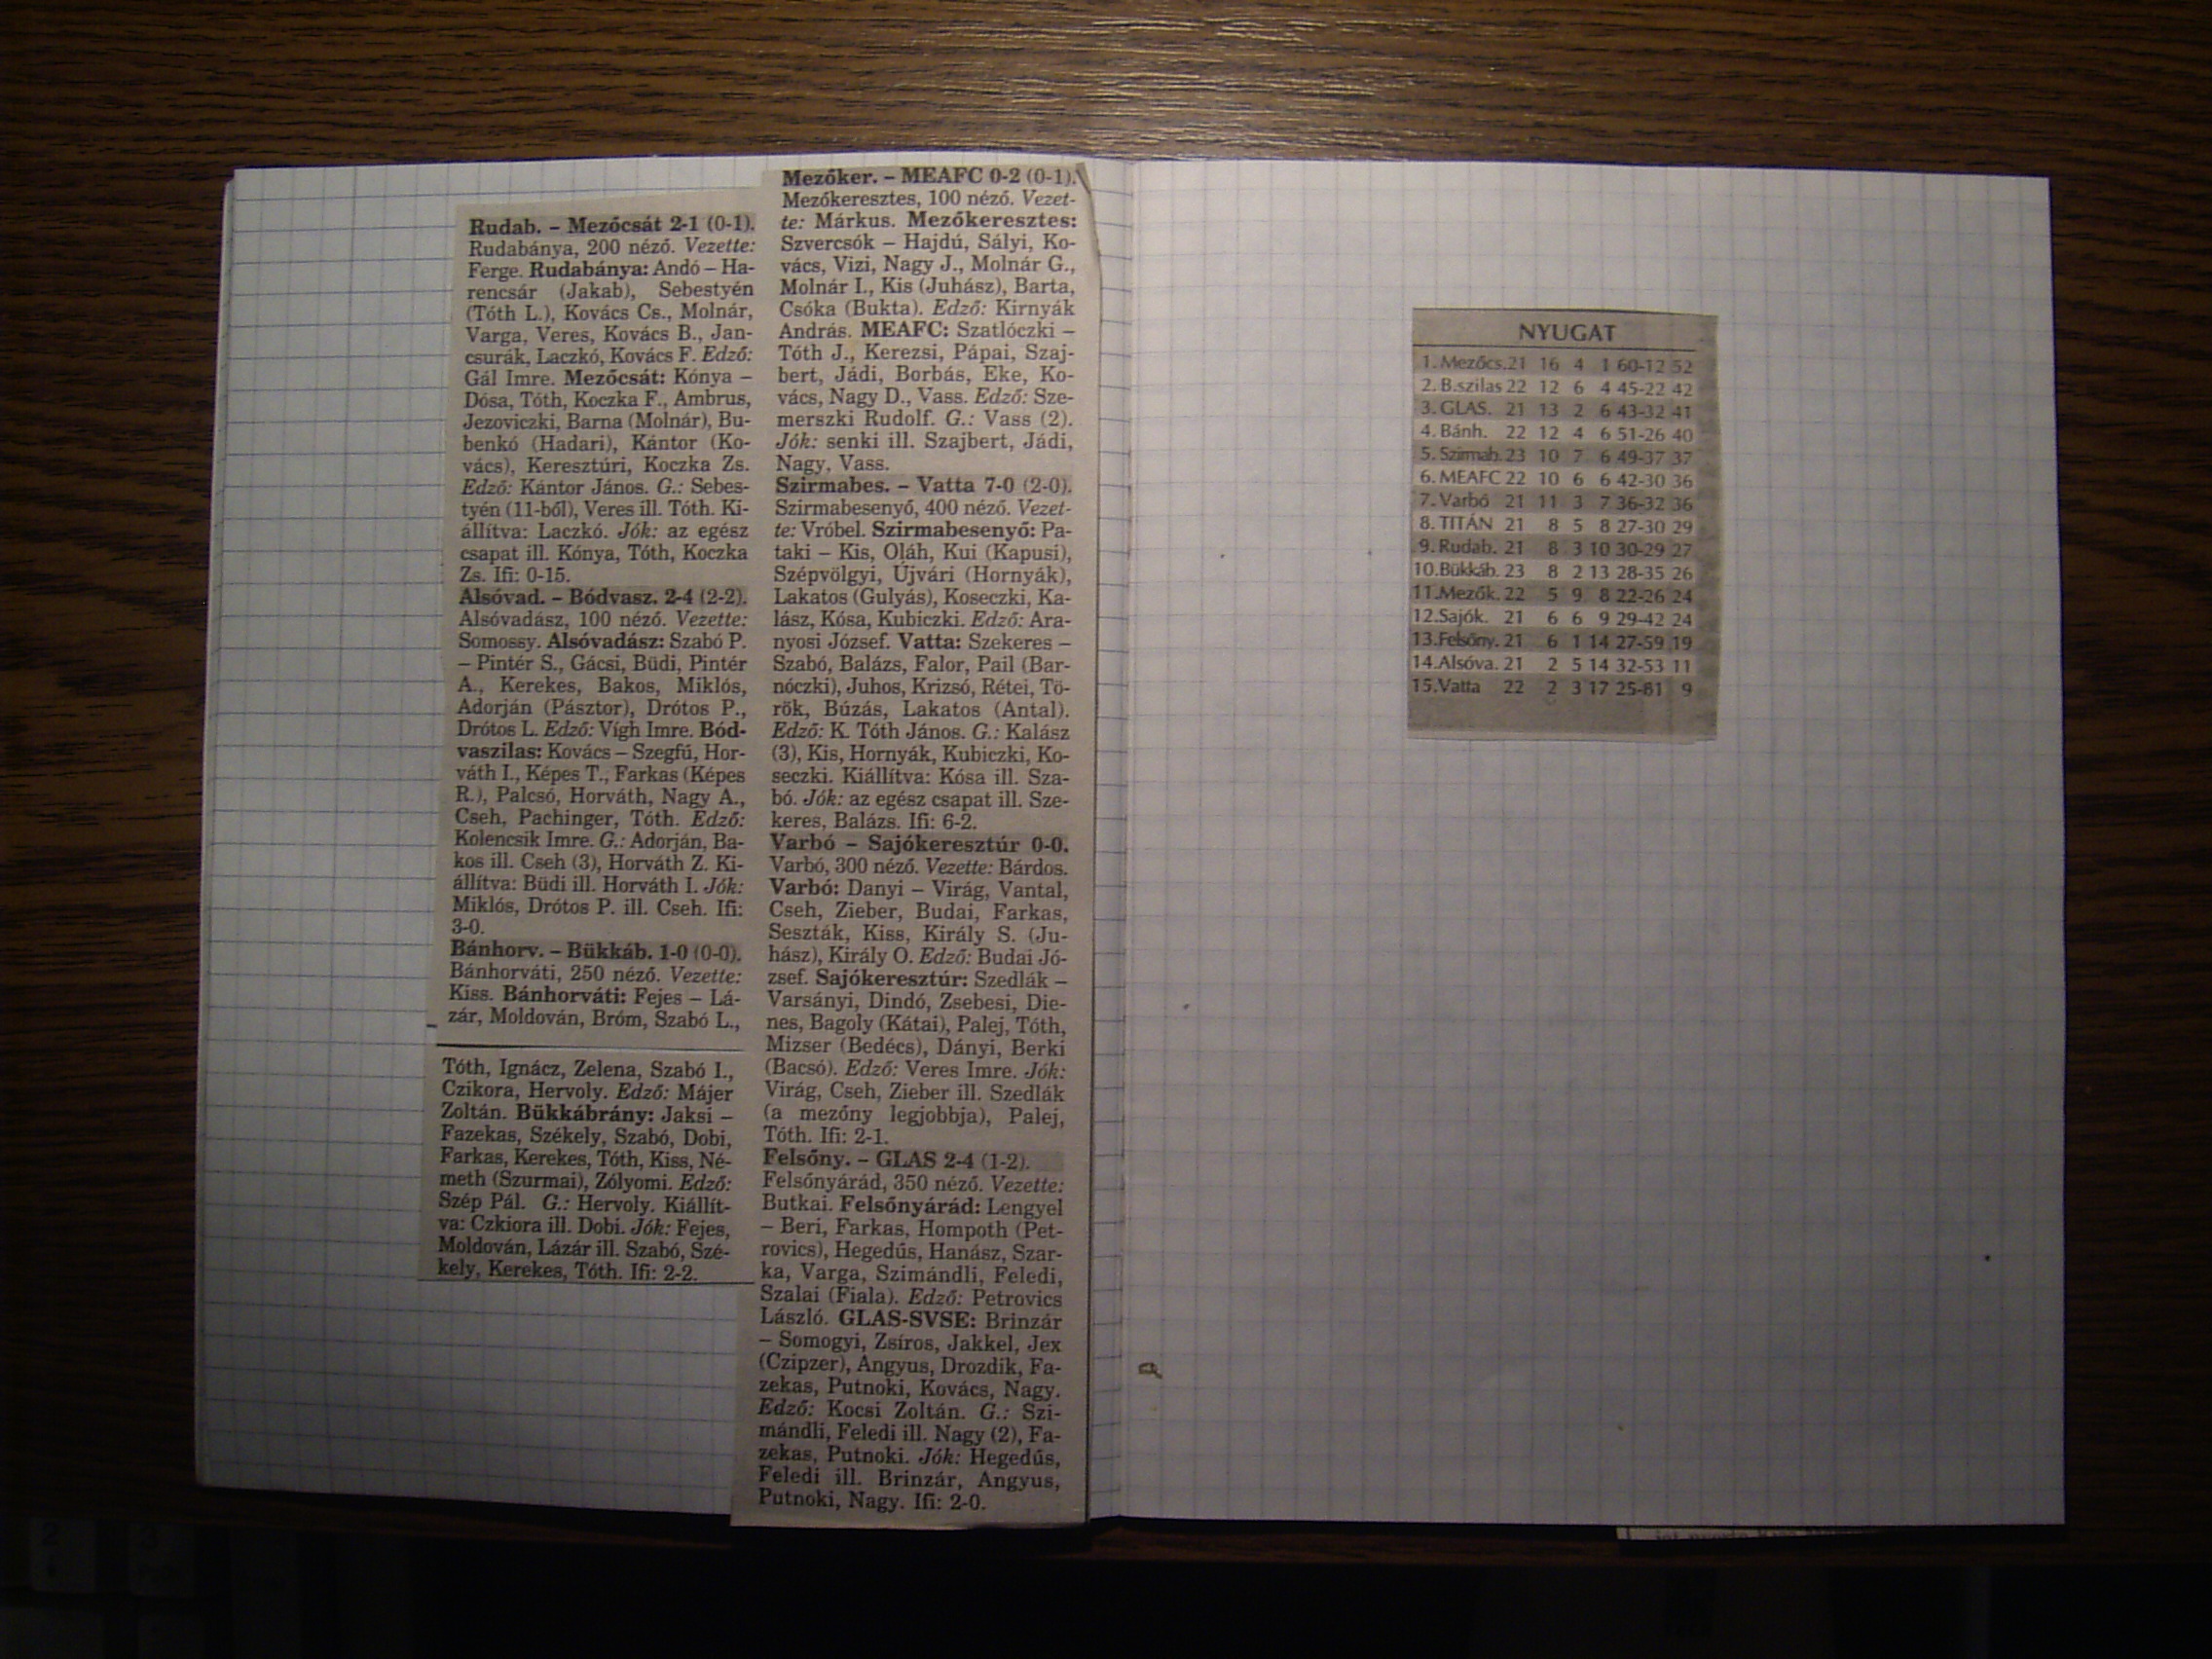 Rudab. – Mezőcsát 2-1 (0-1).
Rudabánya, 200 néző. Vezette:
Ferge. Rudabánya: Andó – Ha-
rencsár (Jakab), Sebestyén
(Tóth L.), Kovács Cs., Molnár,
Varga, Veres, Kovács B., Jan-
csurák, Laczkó, Kovács F. Edző:
Gál Imre. Mezőcsát: Kónya –
Dósa, Tóth, Koczka F., Ambrus,
Jezoviczki, Barna (Molnár), Bu-
benkó (Hadari), Kántor (Ko-
vács), Keresztúri, Koczka Zs.
Edző: Kántor János. G.: Sebes-
tyén (11-ből), Veres ill. Tóth. Ki-
állítva: Laczkó. Jók: az egész
csapat ill. Kónya, Tóth, Koczka
Zs. Ifi: 0-15.
Alsóvad. – Bódvasz. 2-4 (2-2).
Alsóvadász, 100 néző. Vezette:
Somossy. Alsóvadász: Szabó P.
– Pintér S., Gácsi, Büdi, Pintér
A., Kerekes, Bakos, Miklós,
Adorján (Pásztor), Drótos P.,
Drótos L. Edző: Vígh Imre. Bód-
vaszilas: Kovács – Szegfű, Hor-
váth I., Képes T., Farkas (Képes
R.), Palcsó, Horváth, Nagy A.,
Cseh, Pachinger, Tóth. Edző:
Kolencsik Imre. G.: Adorján, Ba-
kos ill. Cseh (3), Horváth Z. Ki-
állítva: Büdi ill. Horváth I. Jók:
Miklós, Drótos P. ill. Cseh. Ifi:
3-0.
Bánhorv. – Bükkáb. 1-0 (0-0).
Bánhorváti, 250 néző. Vezette:
Kiss. Bánhorváti: Fejes – Lá-
zár, Moldován, Bróm, Szabó L.,
Tóth, Ignácz, Zelena, Szabó I.,
Czikora, Hervoly. Edző: Májer
Zoltán. Bükkábrány: Jaksi –
Fazekas, Székely, Szabó, Dobi,
Farkas, Kerekes, Tóth, Kiss, Né-
meth (Szurmai), Zólyomi. Edző:
Szép Pál. G.: Hervoly. Kiállít-
va: Czkiora ill. Dobi. Jók: Fejes,
Moldován, Lázár ill. Szabó, Szé-
kely, Kerekes, Tóth. Ifi: 2-2.
Mezőker. – MEAFC 0-2 (0-1).
Mezőkeresztes, 100 néző. Vezet-
te: Márkus. Mezőkeresztes:
Szvercsók – Hajdú, Sályi, Ko-
vács, Vizi, Nagy J., Molnár G.,
Molnár I., Kis (Juhász), Barta,
Csóka (Bukta). Edző: Kirnyák
András. MEAFC: Szatlóczki –
Tóth J., Kerezsi, Pápai, Szaj-
bert, Jádi, Borbás, Eke, Ko-
vács, Nagy D., Vass. Edző: Sze-
merszki Rudolf. G.: Vass (2).
Jók: senki ill. Szajbert, Jádi,
Nagy, Vass.
Szirmabes. – Vatta 7-0 (2-0).
Szirmabesenyő, 400 néző. Vezet-
te: Vróbel. Szirmabesenyő: Pa-
taki – Kis, Oláh, Kui (Kapusi),
Szépvölgyi, Újvári (Hornyák),
Lakatos (Gulyás), Koseczki, Ka-
lász, Kósa, Kubiczki. Edző: Ara-
nyosi József. Vatta: Szekeres –
Szabó, Balázs, Falor, Pail (Bar-
nóczki), Juhos, Krizsó, Rétei, Tö-
rök, Búzás, Lakatos (Antal).
Edző: K. Tóth János. G.: Kalász
(3), Kis, Hornyák, Kubiczki, Ko-
seczki. Kiállítva: Kósa ill. Sza-
bó. Jók: az egész csapat ill. Sze-
keres, Balázs. Ifi: 6-2.
Varbó – Sajókeresztúr 0-0.
Varbó, 300 néző. Vezette: Bárdos.
Varbó: Danyi – Virág, Vantal,
Cseh, Zieber, Budai, Farkas,
Seszták, Kiss, Király S. (Ju-
hász), Király O. Edző: Budai Jó-
zsef. Sajókeresztúr: Szedlák –
Varsányi, Dindó, Zsebesi, Die-
nes, Bagoly (Kátai), Palej, Tóth,
Mizser (Bedécs), Dányi, Berki
(Bacsó). Edző: Veres Imre. Jók:
Virág, Cseh, Zieber ill. Szedlák
(a mezőny legjobbja), Palej,
Tóth. Ifi: 2-1.
Felsőny. – GLAS 2-4 (1-2).
Felsőnyárád, 350 néző. Vezette:
Butkai. Felsőnyárád: Lengyel
– Beri, Farkas, Hompoth (Pet-
rovics), Hegedűs, Hanász, Szar-
ka, Varga, Szimándli, Feledi,
Szalai (Fiala). Edző: Petrovics
László. GLAS-SVSE: Brinzár
– Somogyi, Zsíros, Jakkel, Jex
(Czipzer), Angyus, Drozdik, Fa-
zekas, Putnoki, Kovács, Nagy.
Edző: Kocsi Zoltán. G.: Szi-
mándli, Feledi ill. Nagy (2), Fa-
zekas, Putnoki. Jók: Hegedűs,
Feledi ill. Brinzár, Angyus,
Putnoki, Nagy. Ifi: 2-0.
NYUGAT
1. Mezőcs. 21 16 4 1 60-12 52
2. B.szilas 22 12 6 4 45-22 42
3. GLAS. 21 13 2 6 43-32 41
4. Bánh. 22 12 4 6 51-26 40
5. Szirmab. 23 10 7 6 49-37 37
6. MEAFC 22 10 6 6 42-30 36
7. Varbó 21 11 3 7 36-32 36
8. TITÁN 21 8 5 8 27-30 29
9. Rudab. 21 8 3 10 30-29 27
10. Bükkáb. 23 8 2 13 28-35 26
11. Mezők. 22 5 9 8 22-26 24
12. Sajók. 21 6 6 9 29-42 24
13. Felsőny. 21 6 1 14 27-59 19
14. Alsóva. 21 2 5 14 32-53 11
15. Vatta 22 2 3 17 25-81 9